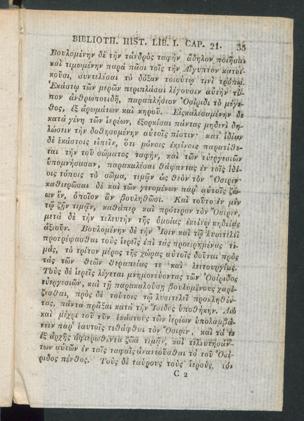 BIBLIOTH. HIST. LIB. I. CAP. 21. 35
Βουλομένην δὲ τὴν τἀνδρὸς ταφὴν ἄδηλον ποιῆσαι
καὶ τιμωμένην παρὰ πᾶσι τοῖς τὴν Αἴγυπτον κατοι-
κοῦσι, συντελέσαι τὸ δόξαν τοιῷδέ τινι τρόπῳ.
Ἑκάστῳ τῶν μερῶν περιπλάσαι λέγουσιν αὐτὴν τύ-
πον ἀνθρωποειδῆ, παραπλήσιον Ὀσίριδι τὸ μέγε-
θος, ἐξ ἀρωμάτων καὶ κηροῦ. Εἰσκαλεσαμένην δὲ
κατὰ γένη τῶν ἱερέων, ἐξορκίσαι πάντας μηδενὶ δη-
λώσειν τὴν δοθησομένην αὐτοῖς πίστιν· κατ' ἰδίαν
δὲ ἑκάστοις εἰπεῖν, ὅτι μόνοις ἐκείνοις παρατίθε-
ται τὴν τοῦ σώματος ταφὴν, καὶ τῶν εὐεργεσιῶν
ὑπομνήσασαν, παρακαλέσαι θάψαντας ἐν τοῖς ἰδί-
οις τόποις τὸ σῶμα, τιμᾷν ὡς θεὸν τὸν Ὄσιριν·
καθιερῶσαι δὲ καὶ τῶν γινομένων παρ' αὐτοῖς ζώ-
ων ἓν, ὁποῖον ἂν βουληθῶσι. Καὶ τοῦτο ἐν μὲν
τῷ ζῆν τιμᾷν, καθάπερ καὶ πρότερον τὸν Ὄσιριν,
μετὰ δὲ τὴν τελευτὴν τῆς ὁμοίας ἐκείνῳ κηδείας
ἀξιοῦν. Βουλομένην δὲ τὴν Ἶσιν καὶ τῷ λυσιτελεῖ
προτρέψασθαι τοὺς ἱερεῖς ἐπὶ τὰς προειρημένας τι-
μὰς, τὸ τρίτον μέρος τῆς χώρας αὐτοῖς δοῦναι πρὸς
τὰς τῶν θεῶν θεραπείας τε καὶ λειτουργίας.
Τοὺς δὲ ἱερεῖς λέγεται μνημονεύοντας τῶν Ὀσίριδος
εὐεργεσιῶν, καὶ τῇ παρακαλούσῃ βουλομένους χαρί-
ζεσθαι, πρὸς δὲ τούτοις τῷ λυσιτελεῖ προκληθέν-
τας, πάντα πρᾶξαι κατὰ τὴν Ἴσιδος ὑποθήκην. Διὸ
καὶ μέχρι τοῦ νῦν ἑκάστους τῶν ἱερέων ὑπολαμβά-
νειν παρ' ἑαυτοῖς τεθάφθαι τὸν Ὄσιριν, καὶ τὰ τε
ἐξ ἀρχῆς ἀφιερωθέντα ζῶα τιμᾷν, καὶ τελευτησάν-
των αὐτῶν ἐν ταῖς ταφαῖς ἀνανεοῦσθαι τὸ τοῦ Ὀσί-
ριδος πένθος. Τοὺς δὲ ταύρους τοὺς ἱεροὺς, τόν
C 2